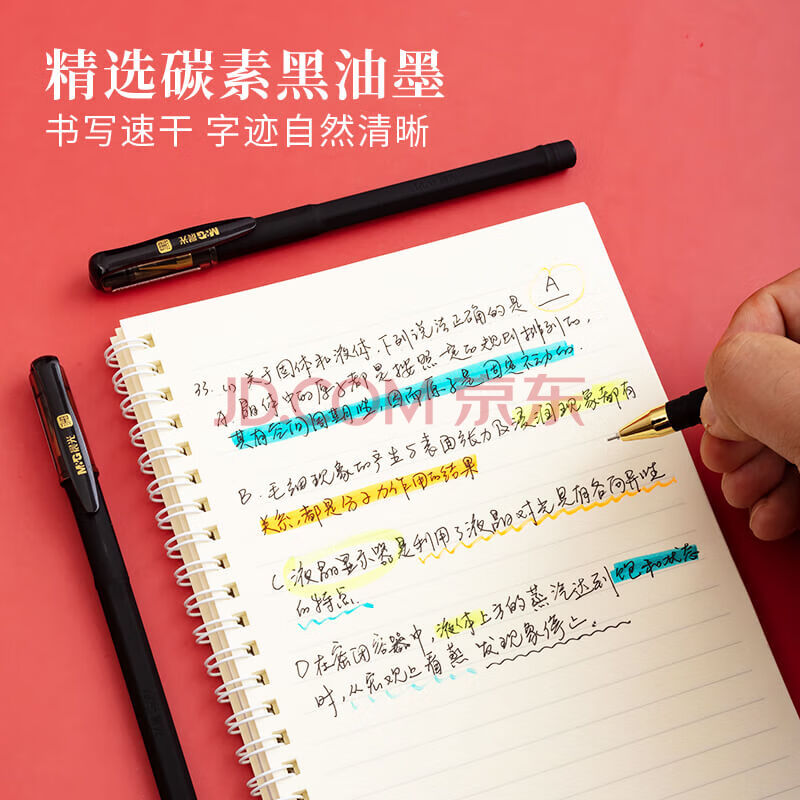 精选碳素黑油墨
书写速干 字迹自然清晰
M&G晨光
M&G晨光
JD.COM 京东
A
33. (1) 关于固体和液体.下列说法正确的是
A.晶体中的原子都是按照一定的规则排列的,
具有空间周期性,因而原子是固定不动的.
B.毛细现象的产生与表面张力及浸润现象都有
关系.都是分子力作用的结果
C.液晶显示器是利用了液晶对光具有各向异性
的特点.
D在密闭容器中,液体上方的蒸汽达到饱和状态
时,从宏观上看蒸发现象停止.